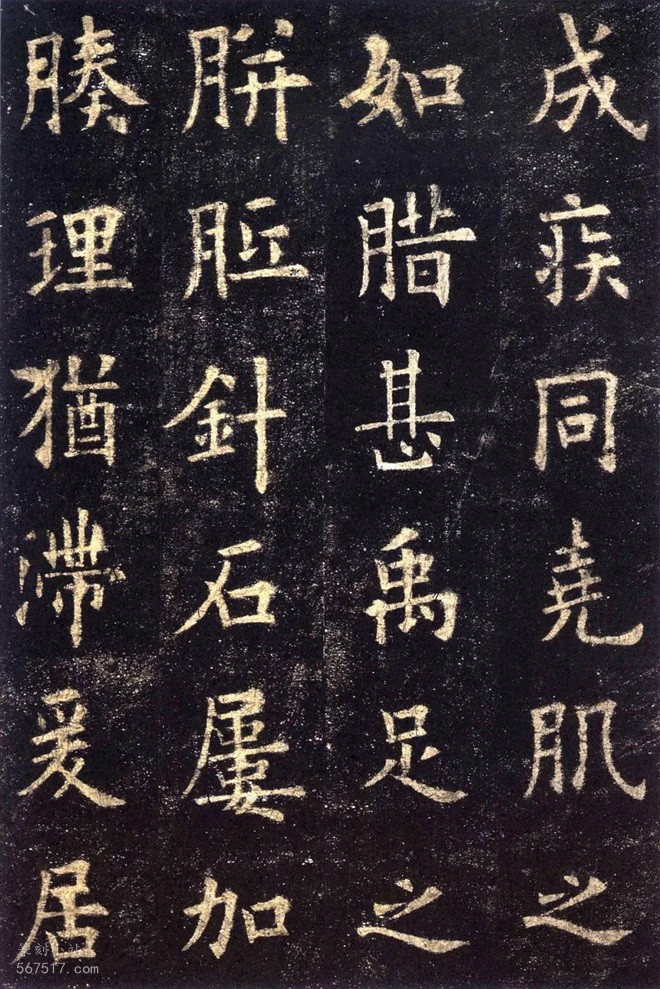 成疾同堯肌之
如腊甚禹足之
胼胝針石屢加
腠理猶滯爰居
567517.com